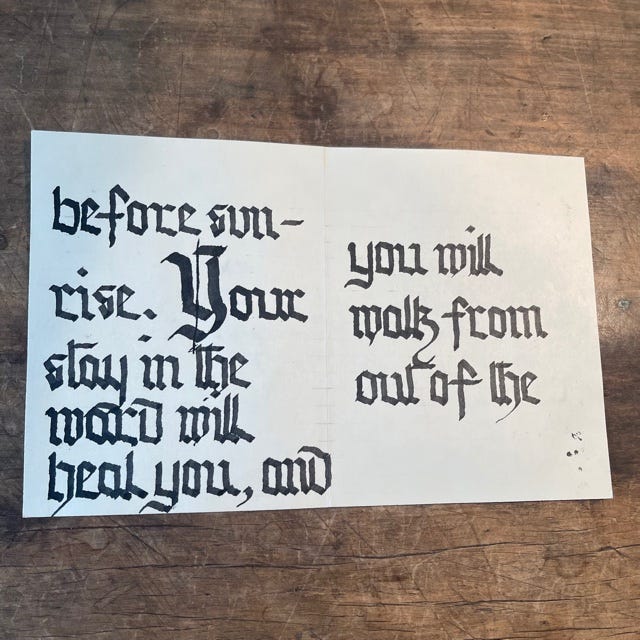 before sun-
rise. Your
stay in the
ward will
heal you, and
you will
walk from
out of the